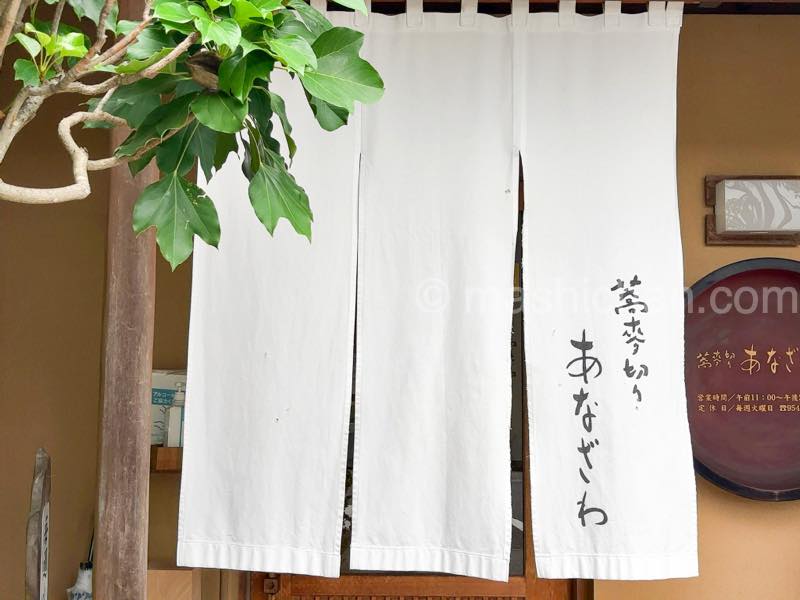 蕎麦切り
あなざわ
© mashic
n.com
蕎麦切り あなざ
営業時間／午前11：00〜午後
定休日／毎週火曜日 ☎954
アルコール